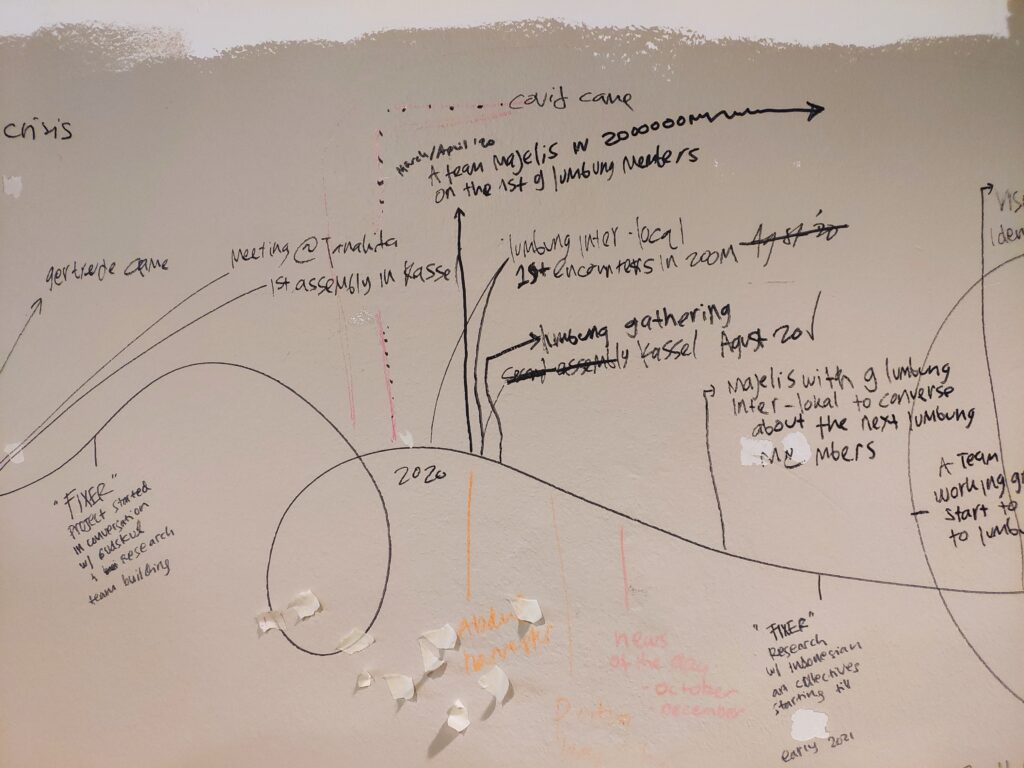 crisis
covid came
March/April '20
A team majelis in 2000000m
on the 1st g lumbung members
gertrude came
meeting @ Tanakita
1st assembly in Kassel
lumbung inter-local
1st encounters in 200M Agust '20
lumbung gathering
assembly Kassel Agust 20
majelis with g lumbung
inter-lokal to converse
about the next lumbung
members
Vis
Iden
A Team
working g
start to
to lumbu
2020
"FIXER"
Project started
in conversation
w/ Gudskul
+ Research
team building
news
of the day
- october
- december
"FIXER"
Research
w/ Indonesian
art collectives
starting till
early 2021